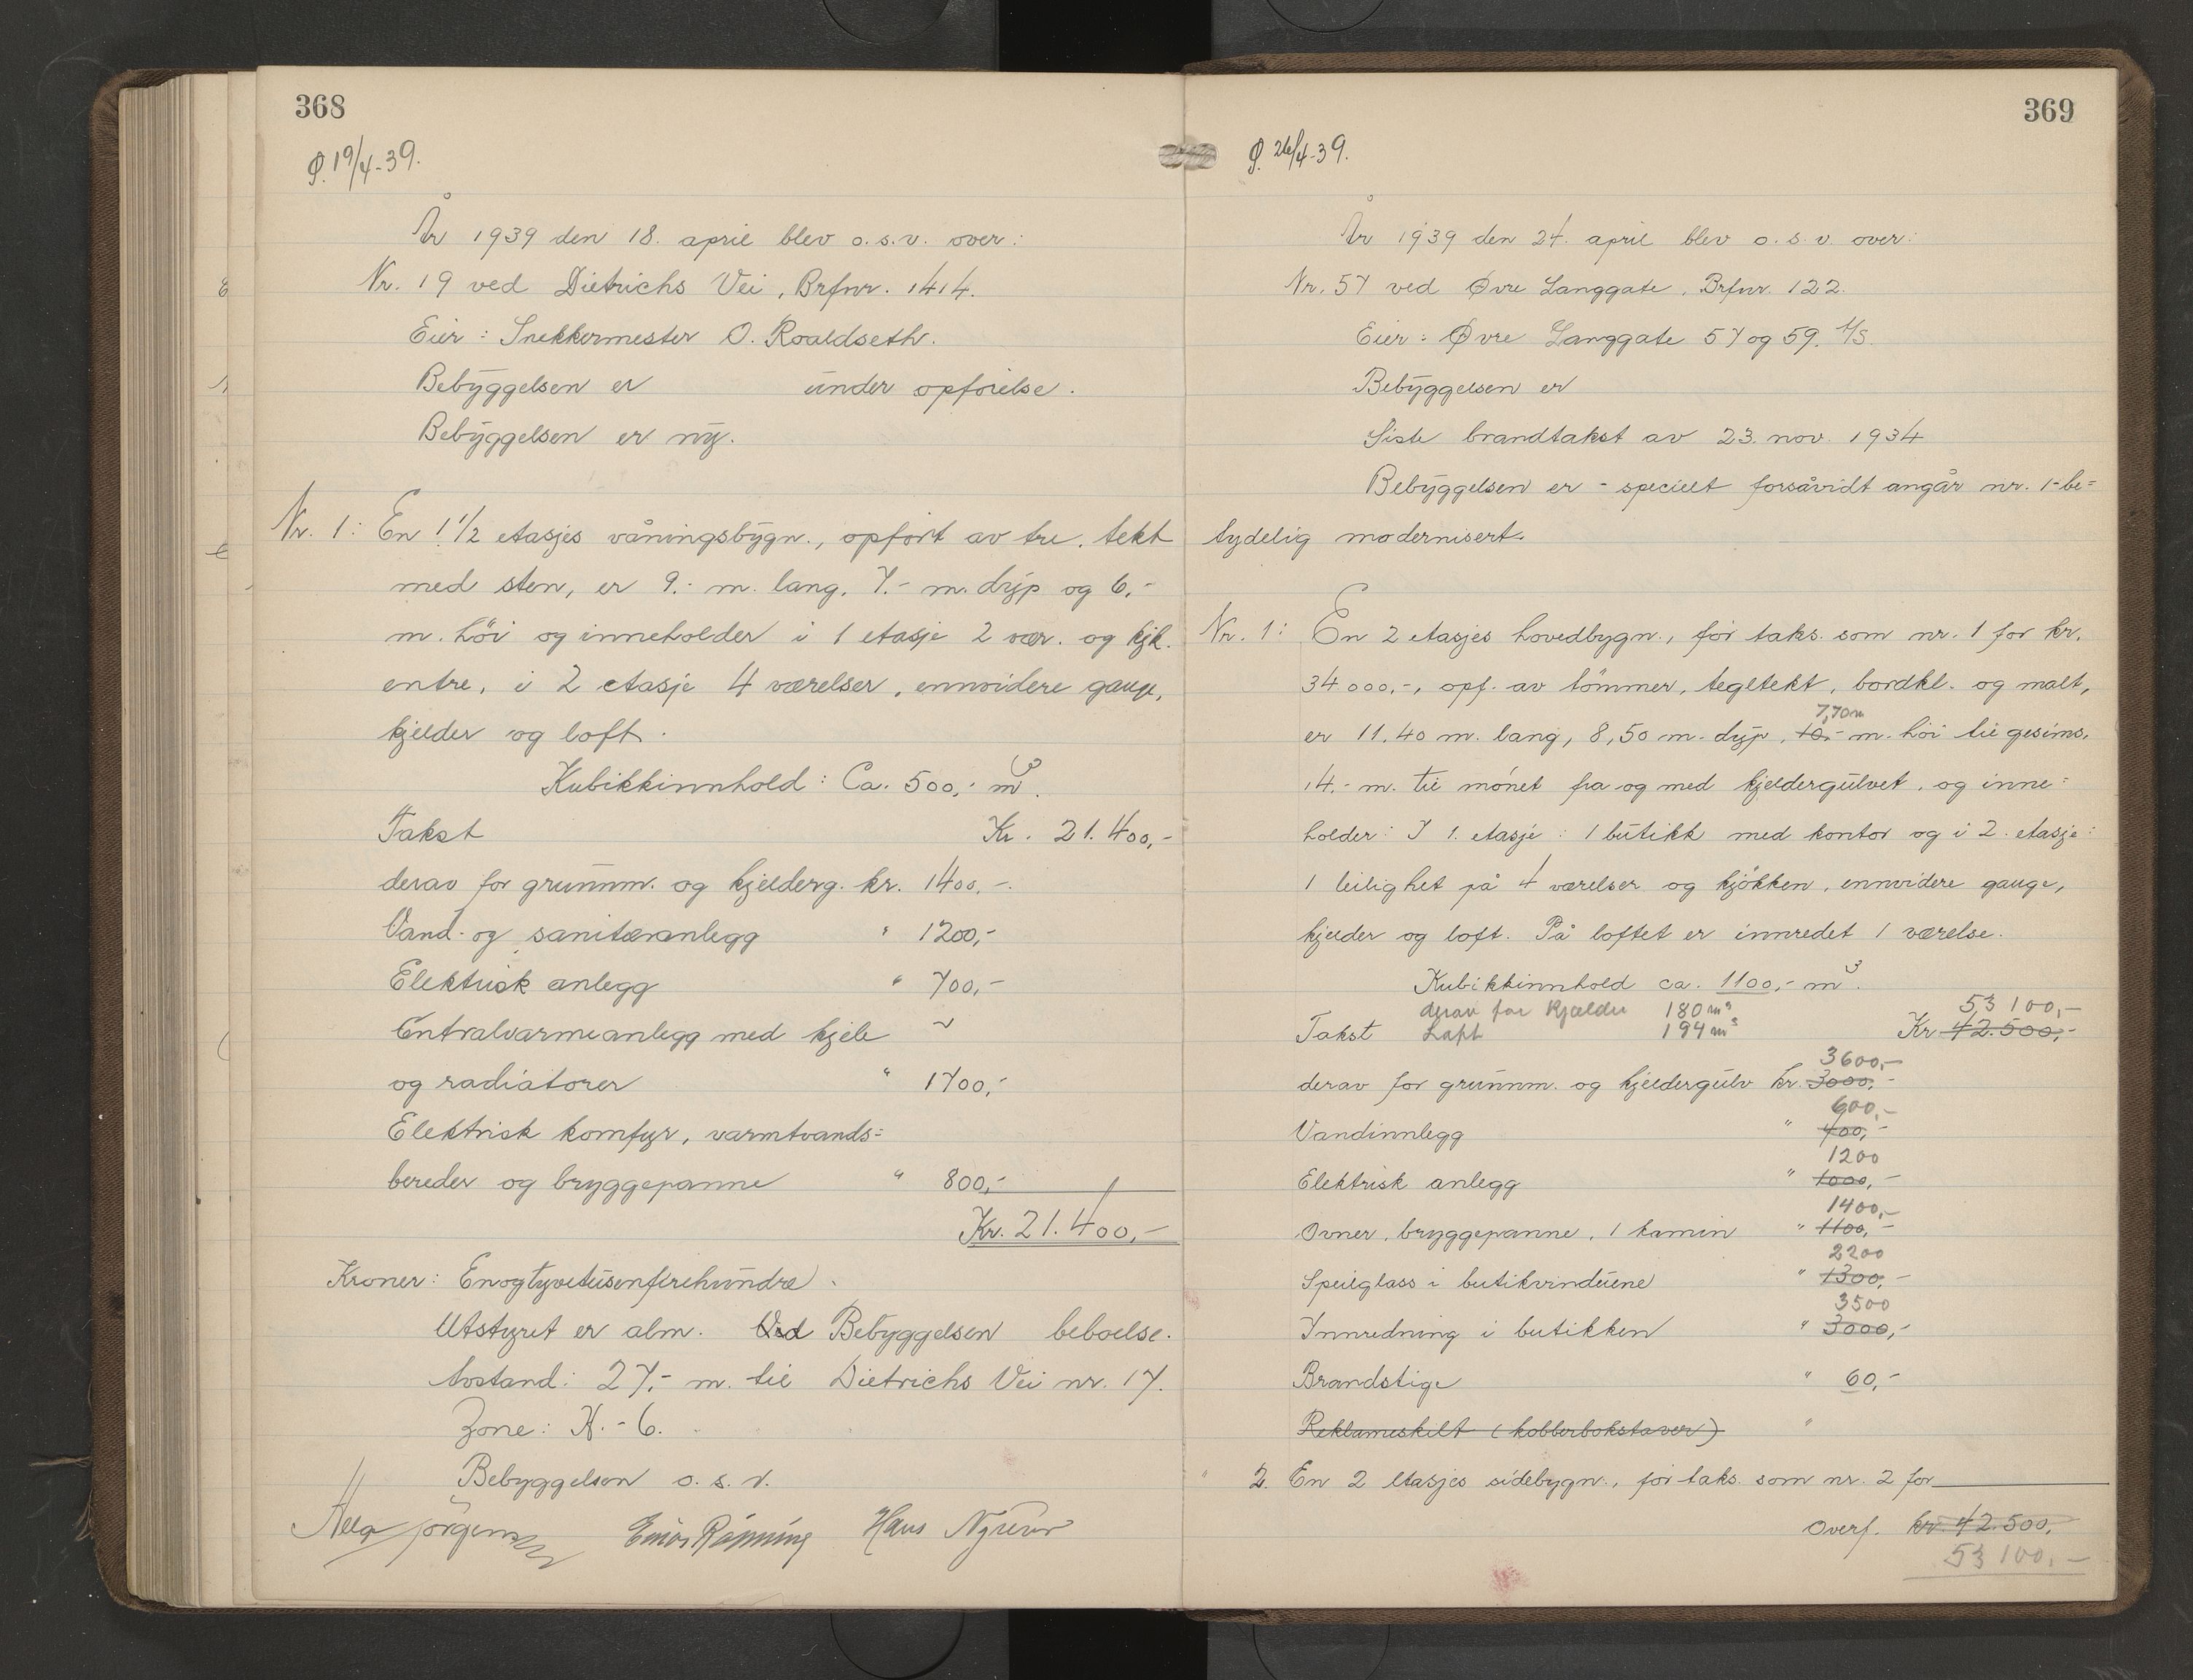 368
P. 19/4-39.
År 1939 den 18. april blev o.s.v. over:
Nr. 19 ved Dietrichs Vei, Brfnr. 1414.
Eier: Snekkermester O. Roaldseth.
Bebyggelsen er under opførelse.
Bebyggelsen er ny.
Nr. 1: En 1 1/2 etasjes våningsbygn., opført av tre, tekt
med sten, er 9.- m. lang, 7.- m. dyp og 6,-
m. höi og inneholder i 1 etasje 2 vær. og kjk.
entre, i 2 etasje 4 værelser, ennvidere gange,
kjelder og loft.
Kubikkinnhold: Ca. 500,- m3.
Takst Kr. 21.400,-
derav for grunnm. og kjelderg. kr. 1400,-.
Vand- og sanitæranlegg " 1200,-
Elektrisk anlegg " 700,-
Centralvarmeanlegg med kjele ~
og radiatorer " 1700,-
Elektrisk komfyr, varmtvands=
bereder og bryggepanne " 800,-
Kr. 21.400,-
Kroner: Enogtyvetusenfirehundre.
Utstyret er alm. Ved Bebyggelsen beboelse.
Avstand: 27,- m. til Dietrichs Vei nr. 17.
Zone: K. - 6.
Bebyggelsen o. s. v.
Jörgensen Einar Rønning Hans
369
P. 26/4-39.
År 1939 den 24. april blev o. s. v. over:
Nr. 57 ved Øvre Langgate, Brfnr. 122.
Eier: Øvre Langgate 57 og 59. A/S
Bebyggelsen er
Siste brandtakst av 23. nov. 1934
Bebyggelsen er - specielt forsåvidt angår nr. 1 - be=
tydelig modernisert.
Nr. 1: En 2 etasjes hovedbygn., før taks. som nr. 1 for kr.
34000,-, opf. av tömmer, tegltekt, bordkl. og malt,
7,70m
er 11.40 m. lang, 8,50 m. dyp, 10,- m. höi til gesims,
14.- m. til mønet fra og med kjeldergulvet, og inne=
holder: I 1. etasje: 1 butikk med kontor og i 2. etasje:
1 leilighet på 4 værelser og kjökken, ennvidere gange,
kjelder og loft. På loftet er innredet 1 værelse.
Kubikkinnhold ca. 1100,- m3.
derav for Kjælder 180 m3 53 100,-
Takst Loft 194 m3 Kr 42.500,-
3600,-
derav for grunnm. og kjeldergulv kr. 3000,-
600,-
Vandinnlegg " 400,-
1200
Elektrisk anlegg " 1000,-
1400,-
Ovner, bryggepanne, 1 kamin " 1100,-
2200
Speilglass i butikvinduene " 1300,-
3500
Innredning i butikken " 3000,-
Brandstige " 60,-
Reklameskilt (kobberbokstaver) "
" 2. En 2 etasjes sidebygn., før taks. som nr. 2 for
Overf. kr. 42.500,
53 100,-